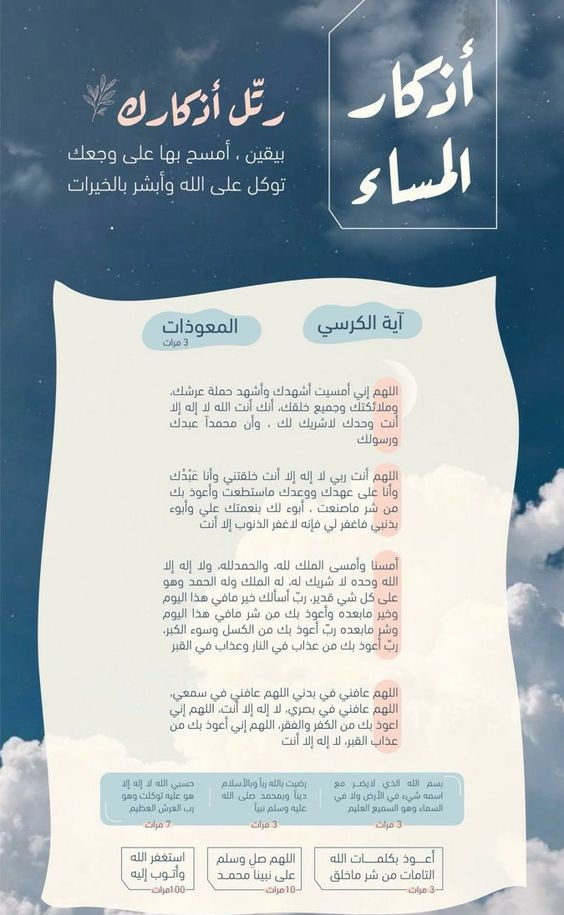 أذكار
المساء
رتّل أذكارك
بيقين ، أمسح بها على وجعك
توكل على الله وأبشر بالخيرات
آية الكرسي
المعوذات
3 مرات
اللهم إني أمسيت أشهدك وأشهد حملة عرشك،
وملائكتك وجميع خلقك، أنك أنت الله لا إله إلا
أنت وحدك لاشريك لك ، وأن محمدآ عبدك
ورسولك
اللهم أنت ربي لا إله إلا أنت خلقتني وأنا عَبْدُك
وأنا على عهدك ووعدك ماستطعت وأعوذ بك
من شر ماصنعت ، أبوء لك بنعمتك علي وأبوء
بذنبي فاغفر لي فإنه لاغفر الذنوب إلا أنت
أمسنا وأمسى الملك لله، والحمدلله، ولا إله إلا
الله وحده لا شريك له. له الملك وله الحمد وهو
على كل شي قدير، ربّ أسألك خير مافي هذا اليوم
وخير مابعده وأعوذ بك من شر مافي هذا اليوم
وشر مابعده ربّ أعوذ بك من الكسل وسوء الكبر،
ربّ أعوذ بك من عذاب في النار وعذاب في القبر
اللهم عافني في بدني اللهم عافني في سمعي،
اللهم عافني في بصري، لا إله إلا أنت، اللهم إني
اعوذ بك من الكفر والفقر، اللهم إني أعوذ بك من
عذاب القبر، لا إله إلا أنت
بسم الله الذي لايضر مع
اسمه شيء في الأرض ولا في
السماء وهو السميع العليم
3 مرات
رضيت بالله رباً وبالأسلام
ديناً وبمحمد صلى الله
عليه وسلم نبياً
3 مرات
حسبي الله لا إله إلا
هو عليه توكلت وهو
رب العرش العظيم
7 مرات
أعــوذ بكلمــات الله
التامات من شر ماخلق
3 مرات
اللهم صل وسلم
على نبينا محمــد
10مرات
استغفر الله
وأتــوب إليه
100مرات